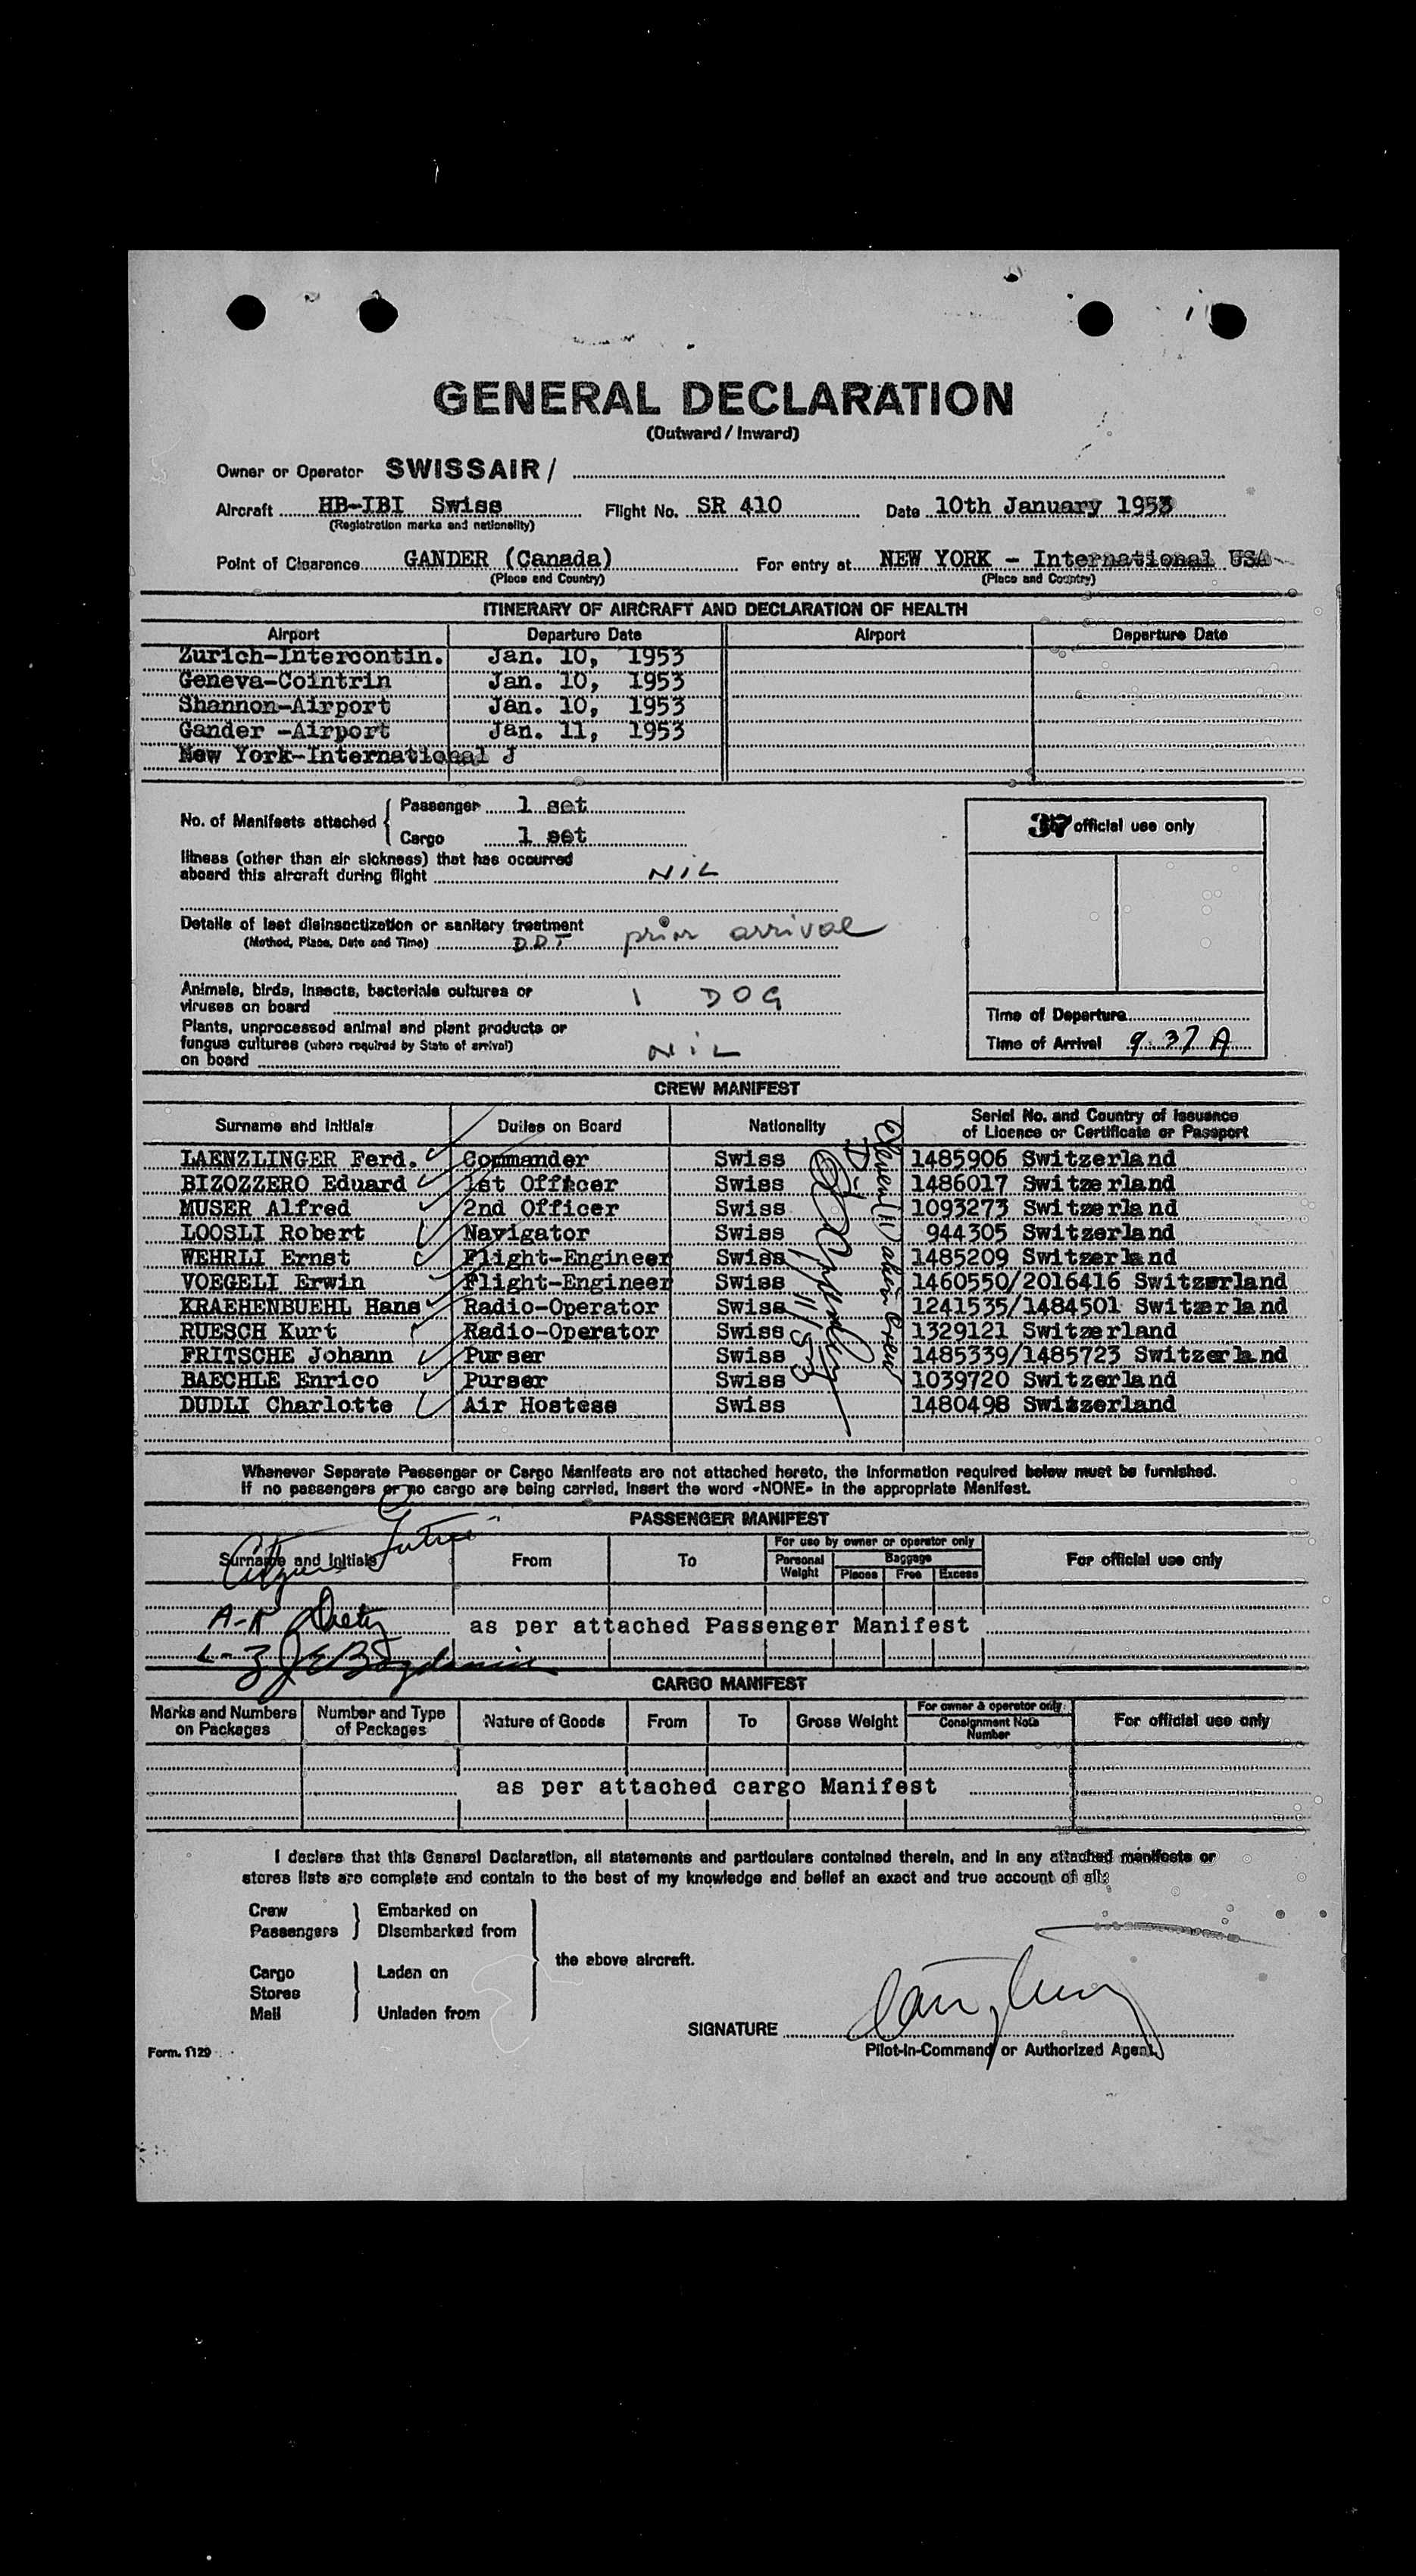 GENERAL DECLARATION
(Outward / Inward)
Owner or Operator SWISSAIR /
Aircraft HB-IBI Swiss Flight No. SR 410 Date 10th January 1953
(Registration marks and nationality)
Point of Clearance GANDER (Canada) For entry at NEW YORK - International USA
(Place and Country) (Place and Country)
ITINERARY OF AIRCRAFT AND DECLARATION OF HEALTH
Airport Departure Date Airport Departure Date
Zurich-Intercontin. Jan. 10, 1953
Geneva-Cointrin Jan. 10, 1953
Shannon-Airport Jan. 10, 1953
Gander -Airport Jan. 11, 1953
New York-International J
No. of Manifests attached
Passenger 1 set
Cargo 1 set
37 official use only
Illness (other than air sickness) that has occurred
aboard this aircraft during flight NIL
Details of last disinsectization or sanitary treatment
(Method, Place, Date and Time) DDT prior arrival
Animals, birds, insects, bacteriale cultures or
viruses on board 1 DOG
Plants, unprocessed animal and plant products or
fungus cultures (where required by State of arrival)
on board NIL
Time of Departure
Time of Arrival 9 37 A
CREW MANIFEST
Surname and Initials Duties on Board Nationality Serial No. and Country of Issuance
of Licence or Certificate or Passport
LAENZLINGER Ferd. Commander Swiss 1485906 Switzerland
BIZOZZERO Eduard 1st Officer Swiss 1486017 Switzerland
MUSER Alfred 2nd Officer Swiss 1093273 Switzerland
LOOSLI Robert Navigator Swiss 944305 Switzerland
WEHRLI Ernst Flight-Engineer Swiss 1485209 Switzerland
VOEGELI Erwin Flight-Engineer Swiss 1460550/2016416 Switzerland
KRAEHENBUEHL Hans Radio-Operator Swiss 1241535/1484501 Switzerland
RUESCH Kurt Radio-Operator Swiss 1329121 Switzerland
FRITSCHE Johann Purser Swiss 1485339/1485723 Switzerland
BAECHLE Enrico Purser Swiss 1039720 Switzerland
DUDLI Charlotte Air Hostess Swiss 1480498 Switzerland
Eleven (11) alien crew
1/11/53
Whenever Separate Passenger or Cargo Manifests are not attached hereto, the information required below must be furnished.
If no passengers or no cargo are being carried, insert the word «NONE» in the appropriate Manifest.
PASSENGER MANIFEST
Surname and Initials From To For use by owner or operator only For official use only
Personal Weight Baggage
Pieces Free Excess
Citizens
A-K
as per attached Passenger Manifest
L-Z
CARGO MANIFEST
Marks and Numbers on Packages Number and Type of Packages Nature of Goods From To Gross Weight For owner & operator only For official use only
Consignment Note Number
as per attached cargo Manifest
I declare that this General Declaration, all statements and particulars contained therein, and in any attached manifests or
stores lists are complete and contain to the best of my knowledge and belief an exact and true account of all:
Crew Embarked on
Passengers Disembarked from
the above aircraft.
Cargo Laden on
Stores
Mail Unladen from
SIGNATURE
Form. 1129 Pilot-in-Command or Authorized Agent.